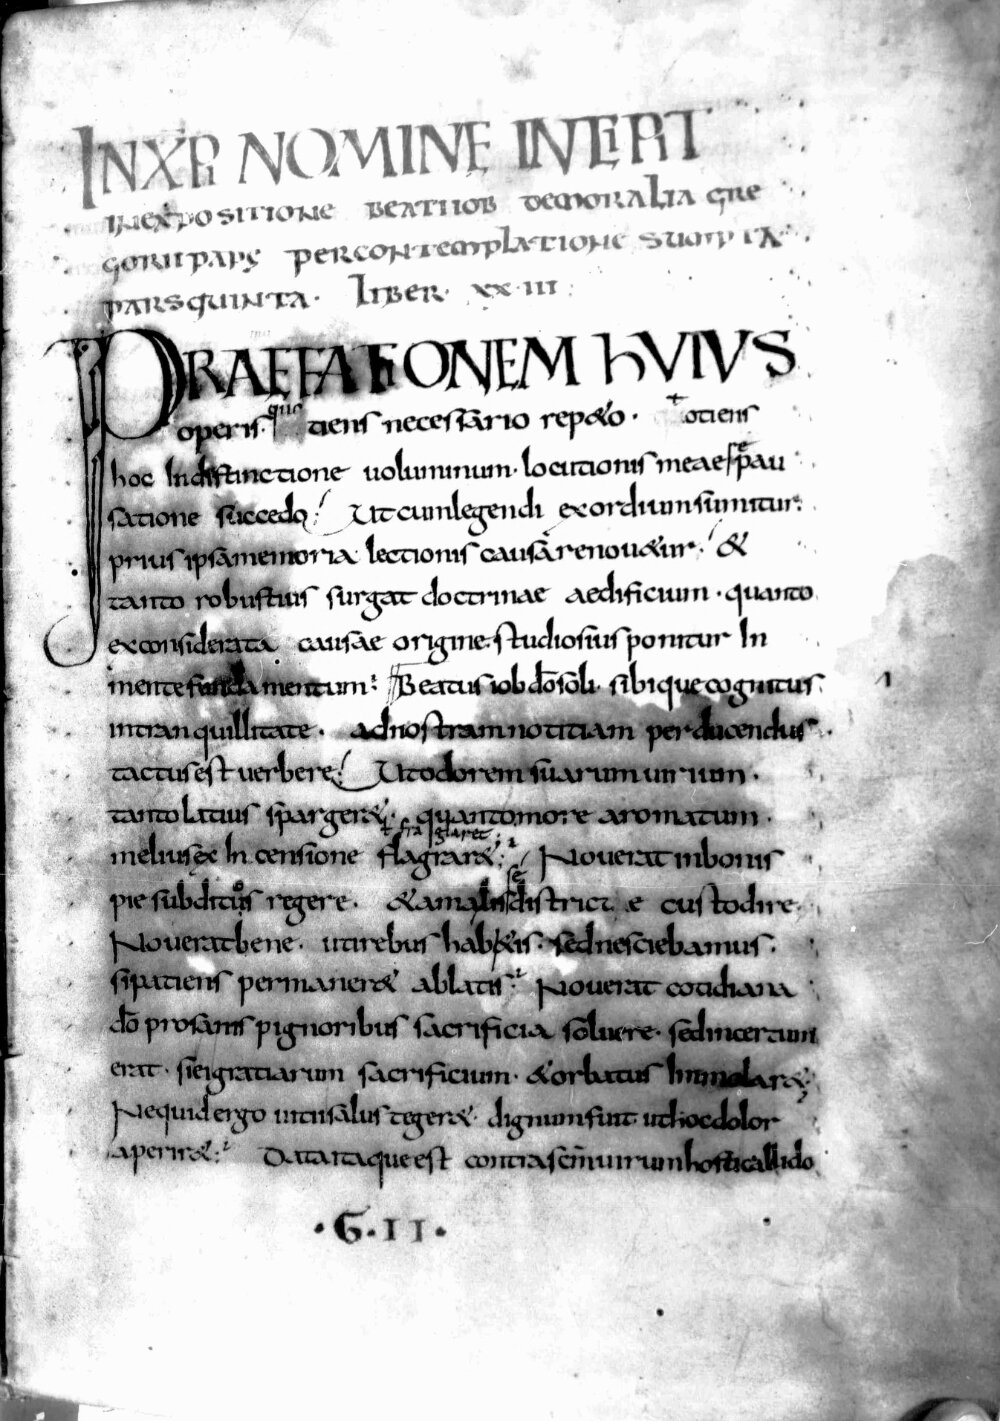 IN XPI NOMINE INCIPIT
IN EXPOSITIONE BEATI IOB DE MORALIA GRE
GORII PAPE PER CONTEMPLATIONE SUMPTA
PARS QUINTA · LIBER · XX·III :
PRAEFATIONEM HUIUS
operis · quotiens necessario repeto · totiens
hoc In distinctione voluminum · locutionis meae pau
satione succedo; Ut cum legendi exordium sumitur
prius ipsa memoria lectionis causa renouetur; &
tanto robustius surgat doctrinae aedificium · quanto
ex considerata causae origine · studiosius ponitur In
mente fundamentum; Beatus iob dõ soli · sibique cognitus
in tranquillitate · ad nostram notitiam perducendus ·
tactus est verbere; Ut odorem suarum virium ·
tanto latius spargeret · quanto more aromatum ·
fraglaret
melius ex Incensione flagraret; Noverat in bonis
se
pie subditos regere · & a malis districte custodire
Noverat bene · uti rebus habitis · sed nesciebamus ·
si patiens permaneret ablatis; Noverat cotidiana
dõ pro sanis pignoribus sacrificia solvere · sed incertum
erat · si ei gratiarum sacrificium · & orbatus Immolaret
Ne quid ergo vitii salus tegeret · dignum fuit ut hoc dolor
aperiret; Data itaque est contra scm virum hosti callido
· G · II ·